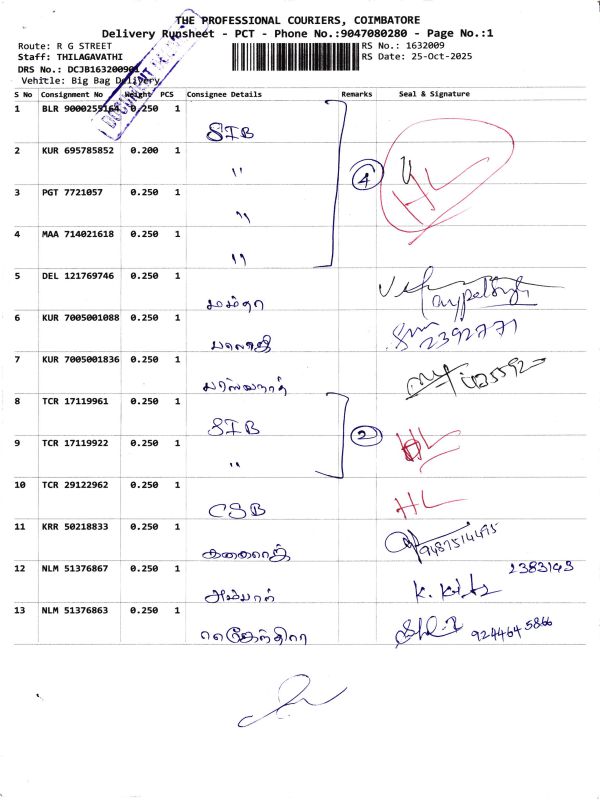 THE PROFESSIONAL COURIERS, COIMBATORE
Delivery Runsheet - PCT - Phone No.:9047080280 - Page No.:1
Route: R G STREET
RS No.: 1632009
Staff: THILAGAVATHI
RS Date: 25-Oct-2025
DRS No.: DCJB163200901
Vehitle: Big Bag Delivery
S No Consignment No Weight PCS Consignee Details Remarks Seal & Signature
1 BLR 9000255164 0.250 1 SIB
2 KUR 695785852 0.200 1 " 4 HL
3 PGT 7721057 0.250 1 "
4 MAA 714021618 0.250 1 "
5 DEL 121769746 0.250 1 மம்தா
6 KUR 7005001088 0.250 1 பாலாஜி 2392771
7 KUR 7005001836 0.250 1 பார்ஸ்வநாத்
8 TCR 17119961 0.250 1 SIB 2
9 TCR 17119922 0.250 1 " HL
10 TCR 29122962 0.250 1 CSB HL
11 KRR 50218833 0.250 1 9487514495
12 NLM 51376867 0.250 1 அம்பாள் 2383193
13 NLM 51376863 0.250 1 9244645866